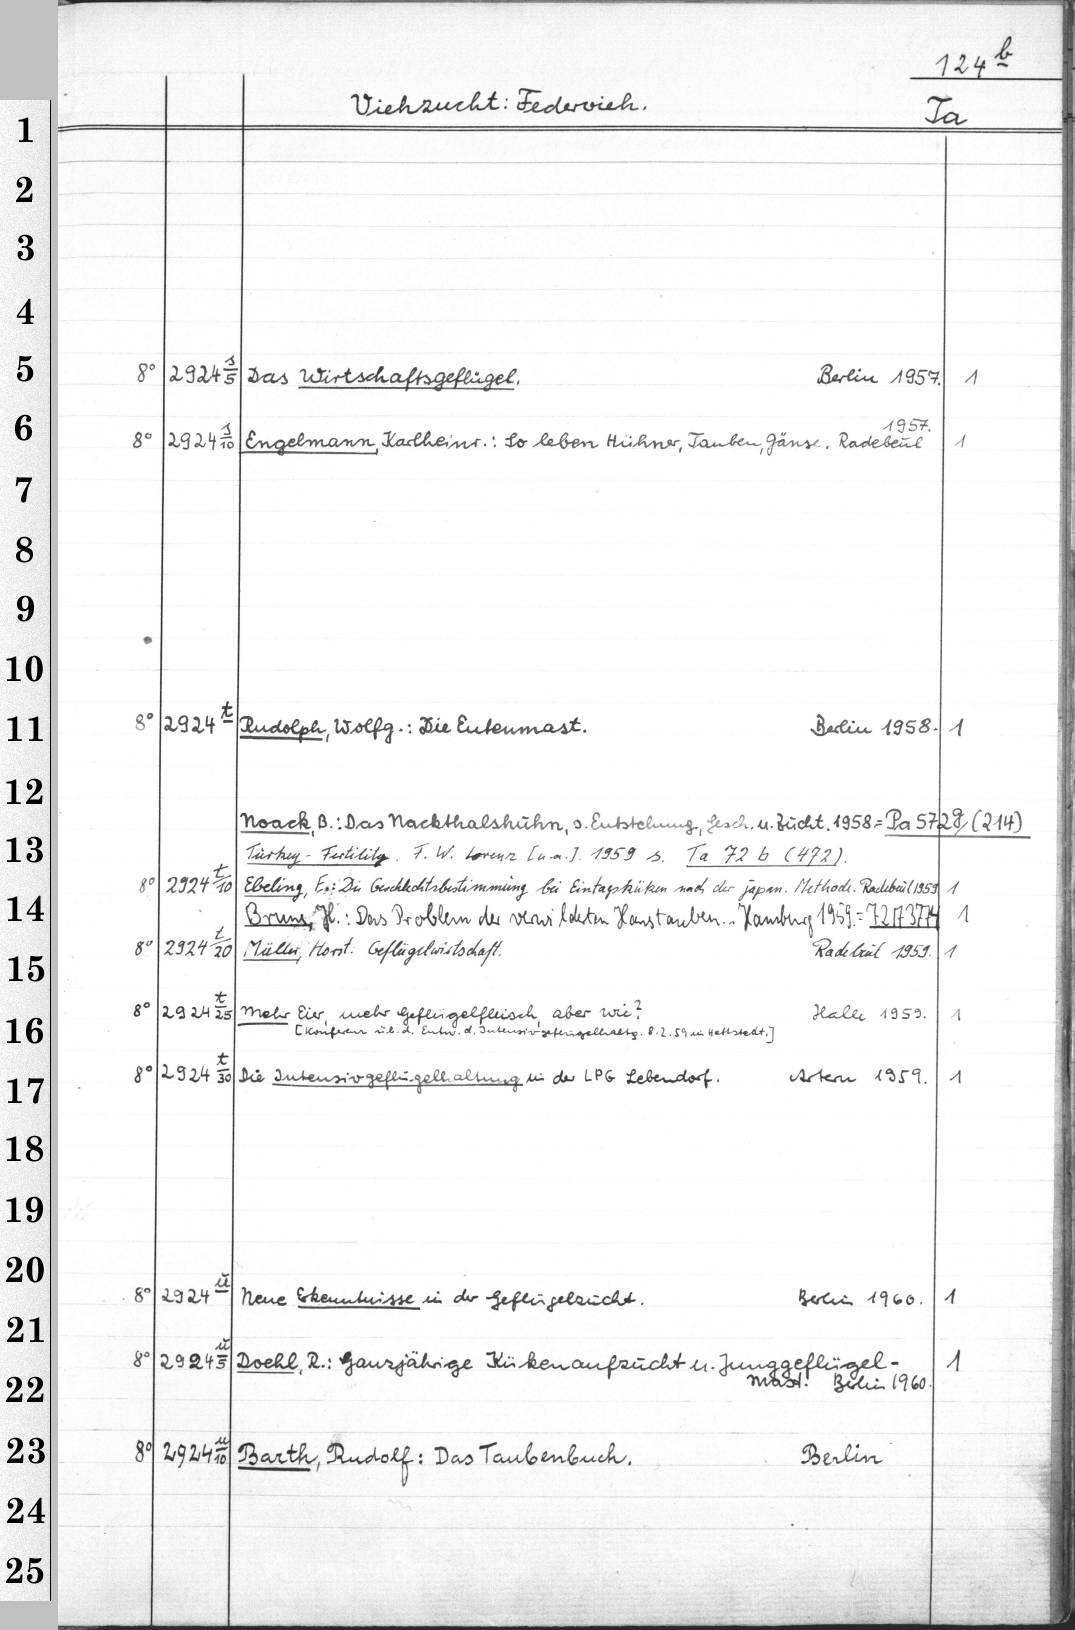 124 b
Viehzucht: Federvieh.
Ta
1
2
3
4
5 8° 2924 s/5 Das Wirtschaftsgeflügel. Berlin 1957. 1
1957.
6 8° 2924 s/10 Engelmann, Karlheinr.: So leben Hühner, Tauben, Gänse. Radebeul 1
7
8
9
10
11 8° 2924 t Rudolph, Wolfg.: Die Entenmast. Berlin 1958. 1
12
Noack, B.: Das Nackthalshuhn, s. Entstehung, Gesch. u. Zucht. 1958 = Pa 572g (214)
13 Turkey-Fertility. F. W. Lorenz [u.a.]. 1959 s. Ta 72 b (472).
8° 2924 t/10 Ebeling, E.: Die Geschlechtsbestimmung bei Eintagsküken nach der japan. Methode. Radebeul 1959 1
14 Bruns, H.: Das Problem der verwilderten Haustauben. Hamburg 1959. = 1
8° 2924 t/20 Müller, Horst: Geflügelwirtschaft. Radebeul 1959. 1
15
8° 2924 t/25 Mehr Eier, mehr Geflügelfleisch, aber wie? Halle 1959. 1
16 [Konferenz üb. d. Entw. d. Intensivgeflügelhaltg. 8.2.59 in Hettstedt.]
17 8° 2924 t/30 Die Intensivgeflügelhaltung in der LPG Lebendorf. Artern 1959. 1
18
19
20
8° 2924 u Neue Erkenntnisse in der Geflügelzucht. Berlin 1960. 1
21
8° 2924 u/5 Doehl, R.: Ganzjährige Kükenaufzucht u. Junggeflügel- 1
22 mast. Berlin 1960.
23 8° 2924 u/10 Barth, Rudolf: Das Taubenbuch. Berlin
24
25